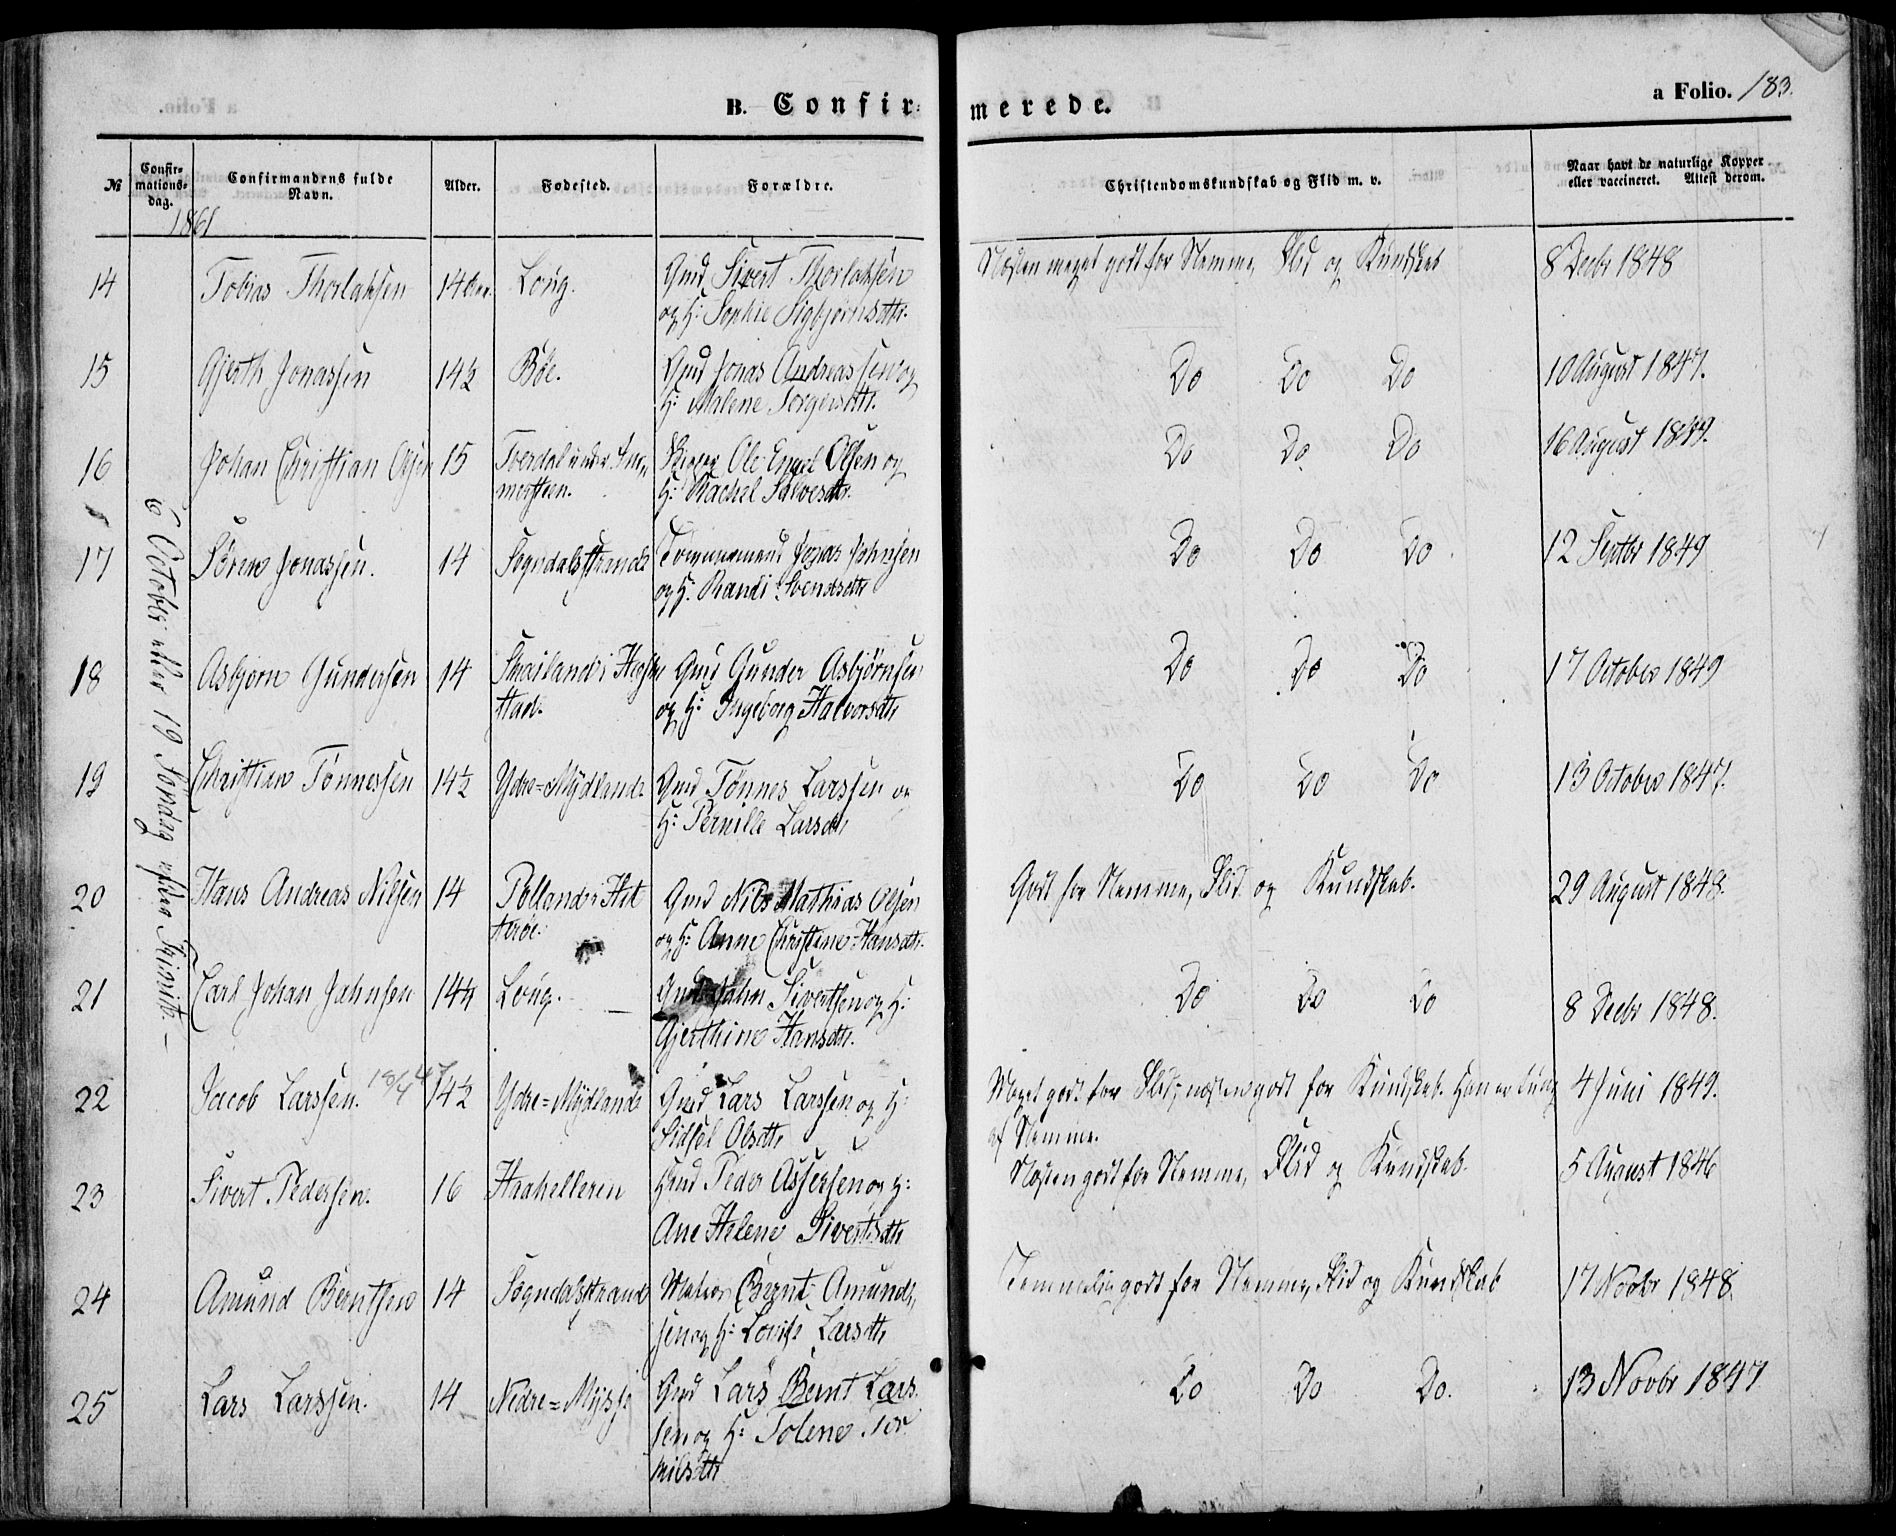 a Folio. 183.
B. Confirmerede.
No
Confirmationsdag.
Confirmandens fulde Navn.
Alder.
Fødested.
Forældre.
Christendomskundskab og Flid m. v.
Naar havt de naturlige Kopper eller vaccineret. Attest derom.
1861
6 October eller 19 Søndag efter Trinit.
14 Tobias Thorlaksen 14 Løug. Gmd Sivert Thorlaksen Næsten meget godt for Nemme, Flid og Kundskab 8 Decbr 1848
og H: Sophie Sigbjørnsdtr.
15 Gjerth Jonassen 14½ Bøe. Gmd Jonas Andreassen og Do Do Do 10 August 1847.
H: Malene Torgersdtr.
16 Johan Christian Olsen 15 Tverdal under Ole Olsen og Do Do Do 16 August 1849.
H: Rachel Salvesdtr.
17 Søren Jonassen. 14 Sogndalsstrand Jonas Johnsen Do Do Do 12 Septbr 1849
og H. Randi Svendsdtr
18 Asbjørn Gundersen 14 Gmd Gunder Asbjørnsen Do Do Do 17 October 1849
og H: Ingeborg Halvorsdtr
19 Christian Tønnessen 14½ Ydre=Mydland Gmd Tønnes Larssen og Do Do Do 13 October 1847.
H: Pernille Larsdtr
20 Hans Andreas Nilsen 14 Gmd Nils Mathias Olsen Godt for Nemme, Flid og Kundskab. 29 August 1848.
og H: Anne Christine Hansdtr.
21 Carl Johan Jahnsen 14¼ Løug. Gmd Jahn Sivertsen og H: Do Do Do 8 Decbr 1848.
Gjerthine Hansdtr.
22 Jacob Larssen. 18/4 47 14½ Ydre=Mydland Gmd Lars Larssen og H: Meget godt for Flid, næsten godt for Kundskab. Han er 4 Juni 1849.
Sidsel Olsdtr af Nemme.
23 Sivert Pedersen. 16 Haahelleren Hmd Peder Assersen og H: Næsten godt for Nemme, Flid og Kundskab. 5 August 1846
Ane Helene Sivertsdtr
24 Amund Berntsen 14 Sogndalsstrand Matros Bernt Amund- Temmelig godt for Nemme, Flid og Kundskab 17 Novbr 1848.
sen og H: Lovise Larsdtr
25 Lars Larssen. 14 Nedre=Myssa Gmd Lars Bernt Lars- Do Do Do. 13 Novbr 1847
sen og H: Tolene